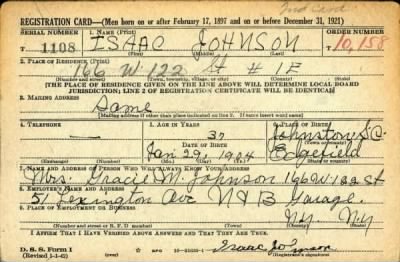 2nd Card
REGISTRATION CARD—(Men born on or after February 17, 1897 and on or before December 31, 1921)
SERIAL NUMBER
1. NAME (Print)
ORDER NUMBER
T 1108 ISAAC JOHNSON T10,158
(First) (Middle) (Last)
2. PLACE OF RESIDENCE (Print)
166 W. 122 St # 1F
(Number and street) (Town, township, village, or city) (County) (State)
[THE PLACE OF RESIDENCE GIVEN ON THE LINE ABOVE WILL DETERMINE LOCAL BOARD
JURISDICTION; LINE 2 OF REGISTRATION CERTIFICATE WILL BE IDENTICAL]
3. MAILING ADDRESS
Same
[Mailing address if other than place indicated on line 2. If same insert word same]
4. TELEPHONE
5. AGE IN YEARS
6. PLACE OF BIRTH
—
37
Johnston S.C.
DATE OF BIRTH
(Town or county)
Jan 29, 1904
Edgefield
(Exchange) (Number)
(Mo.) (Day) (Yr.)
(State or country)
7. NAME AND ADDRESS OF PERSON WHO WILL ALWAYS KNOW YOUR ADDRESS
Mrs. Gracie M. Johnson 166 W 122 St
8. EMPLOYER'S NAME AND ADDRESS
51 Lexington Ave N&B Garage
9. PLACE OF EMPLOYMENT OR BUSINESS
N.Y. N.Y
(Number and street or R. F. D. number) (Town) (County) (State)
I AFFIRM THAT I HAVE VERIFIED ABOVE ANSWERS AND THAT THEY ARE TRUE.
D. S. S. Form 1
(Revised 1-1-42)
GPO
Isaac Johnson
(Registrant's signature)